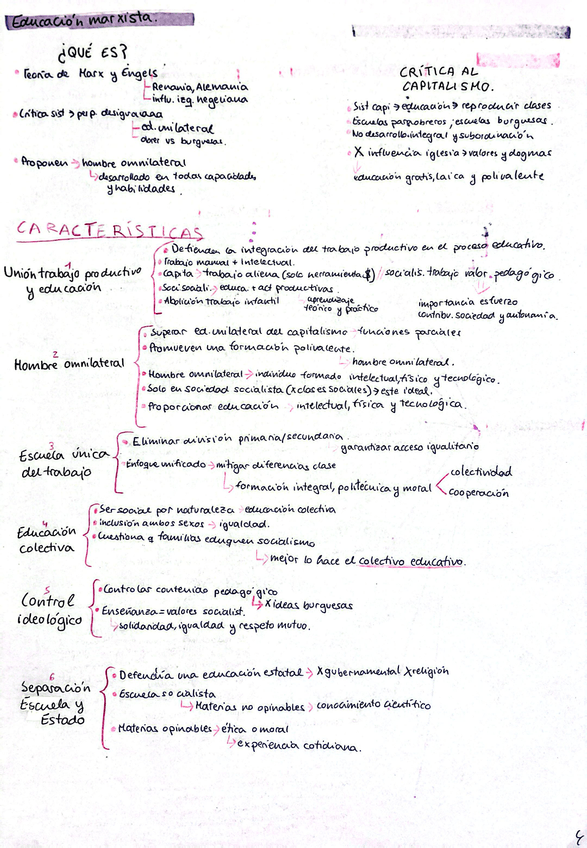 Educación marxista.
¿QUÉ ES?
• Teoría de Marx y Engels
Renania, Alemania
influ. izq. hegeliana
• Crítica sist → perp. desigualdad
ed. unilateral
obrer vs burguesas.
• Proponen → hombre omnilateral
↳ desarrollado en todas capacidades
y habilidades.
CRÍTICA AL
CAPITALISMO.
• Sist capi → educación → reproducir clases
• Escuelas para obreros, escuelas burguesas.
• No desarrollo integral y subordinación
• X influencia iglesia → valores y dogmas
educación gratis, laica y polivalente
CARACTERÍSTICAS
1
Unión trabajo productivo
y educación
• Defienden la integración del trabajo productivo en el proceso educativo.
• Trabajo manual + intelectual.
• Capita → trabajo aliena (solo herramienta $) // socialis. trabajo valor pedagógico.
• Soci sociali. → educa + act productivas.
• Abolición trabajo infantil → aprendizaje
teórico y práctico
importancia esfuerzo
contribu. sociedad y autonomía.
2
Hombre omnilateral
• Superar ed. unilateral del capitalismo → funciones parciales
• Promueven una formación polivalente.
↳ hombre omnilateral.
• Hombre omnilateral → individuo formado intelectual, físico y tecnológico.
• Solo en sociedad socialista (x clases sociales) → este ideal.
• Proporcionar educación → intelectual, física y tecnológica.
3
Escuela única
del trabajo
• Eliminar división primaria/secundaria
garantizar acceso igualitario
• Enfoque unificado → mitigar diferencias clase
↳ formación integral, politécnica y moral
colectividad
cooperación
4
Educación
colectiva
• Ser social por naturaleza → educación colectiva
• inclusión ambos sexos → igualdad.
• Cuestiona q familias eduquen socialismo
↳ mejor lo hace el colectivo educativo.
5
Control
ideológico
• Controlar contenido pedagógico
↳ X ideas burguesas
• Enseñanza = valores socialist.
↳ solidaridad, igualdad y respeto mutuo.
6
Separación
Escuela y
Estado
• Defendía una educación estatal → X gubernamental X religión
• Escuela socialista
↳ Materias no opinables → conocimiento científico
• Materias opinables → ética o moral
↳ experiencia cotidiana.
4